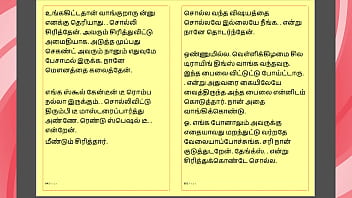 உங்ககிட்டதான் வாங்குறாரு ன்னு
எனக்கு தெரியாது... சொல்லி
சிரித்தேன். அவரும் சிரித்துவிட்டு
அமைதியாக. அடுத்த முப்பது
செகண்ட் அவரும் நானும் எதுவுமே
பேசாமல் இருக்க. நானே
மெளனத்தைக் கலைத்தேன்.
எங்க ஸ்கூல் கேன்டீன் டீ ரொம்ப
நல்லா இருக்கும்... சொல்லிவிட்டு
திரும்பி டீ மாஸ்டரைப்பார்த்து
அண்ணே. ரெண்டு ஸ்பெஷல் டீ...
என்றேன்.
மீண்டும் சிரித்தார்.
சொல்ல வந்த விஷயத்தை
சொல்லவே இல்லையே நீங்க... என்று
நானே தொடர்ந்தேன்.
ஒண்ணுமில்ல. வெள்ளிக்கிழமை சில
டிராயிங் திங்ஸ் வாங்க வந்தவரு.
இந்த பைலை விட்டுட்டு போய்ட்டாரு.
. என்று அதுவரை கையிலேயே
வைத்திருந்த அந்த பைலை என்னிடம்
கொடுத்தார். நான் அதை
வாங்கிக்கொண்டு.
ஓ. எங்க போனாலும் அவருக்கு
எதையாவது மறந்துட்டு வர்றதே
வேலையாப்போச்சுங்க. சரி நான்
குடுத்துடறேன். தேங்க்ஸ்.. என்று
சிரித்துக்கொண்டே சொல்ல.